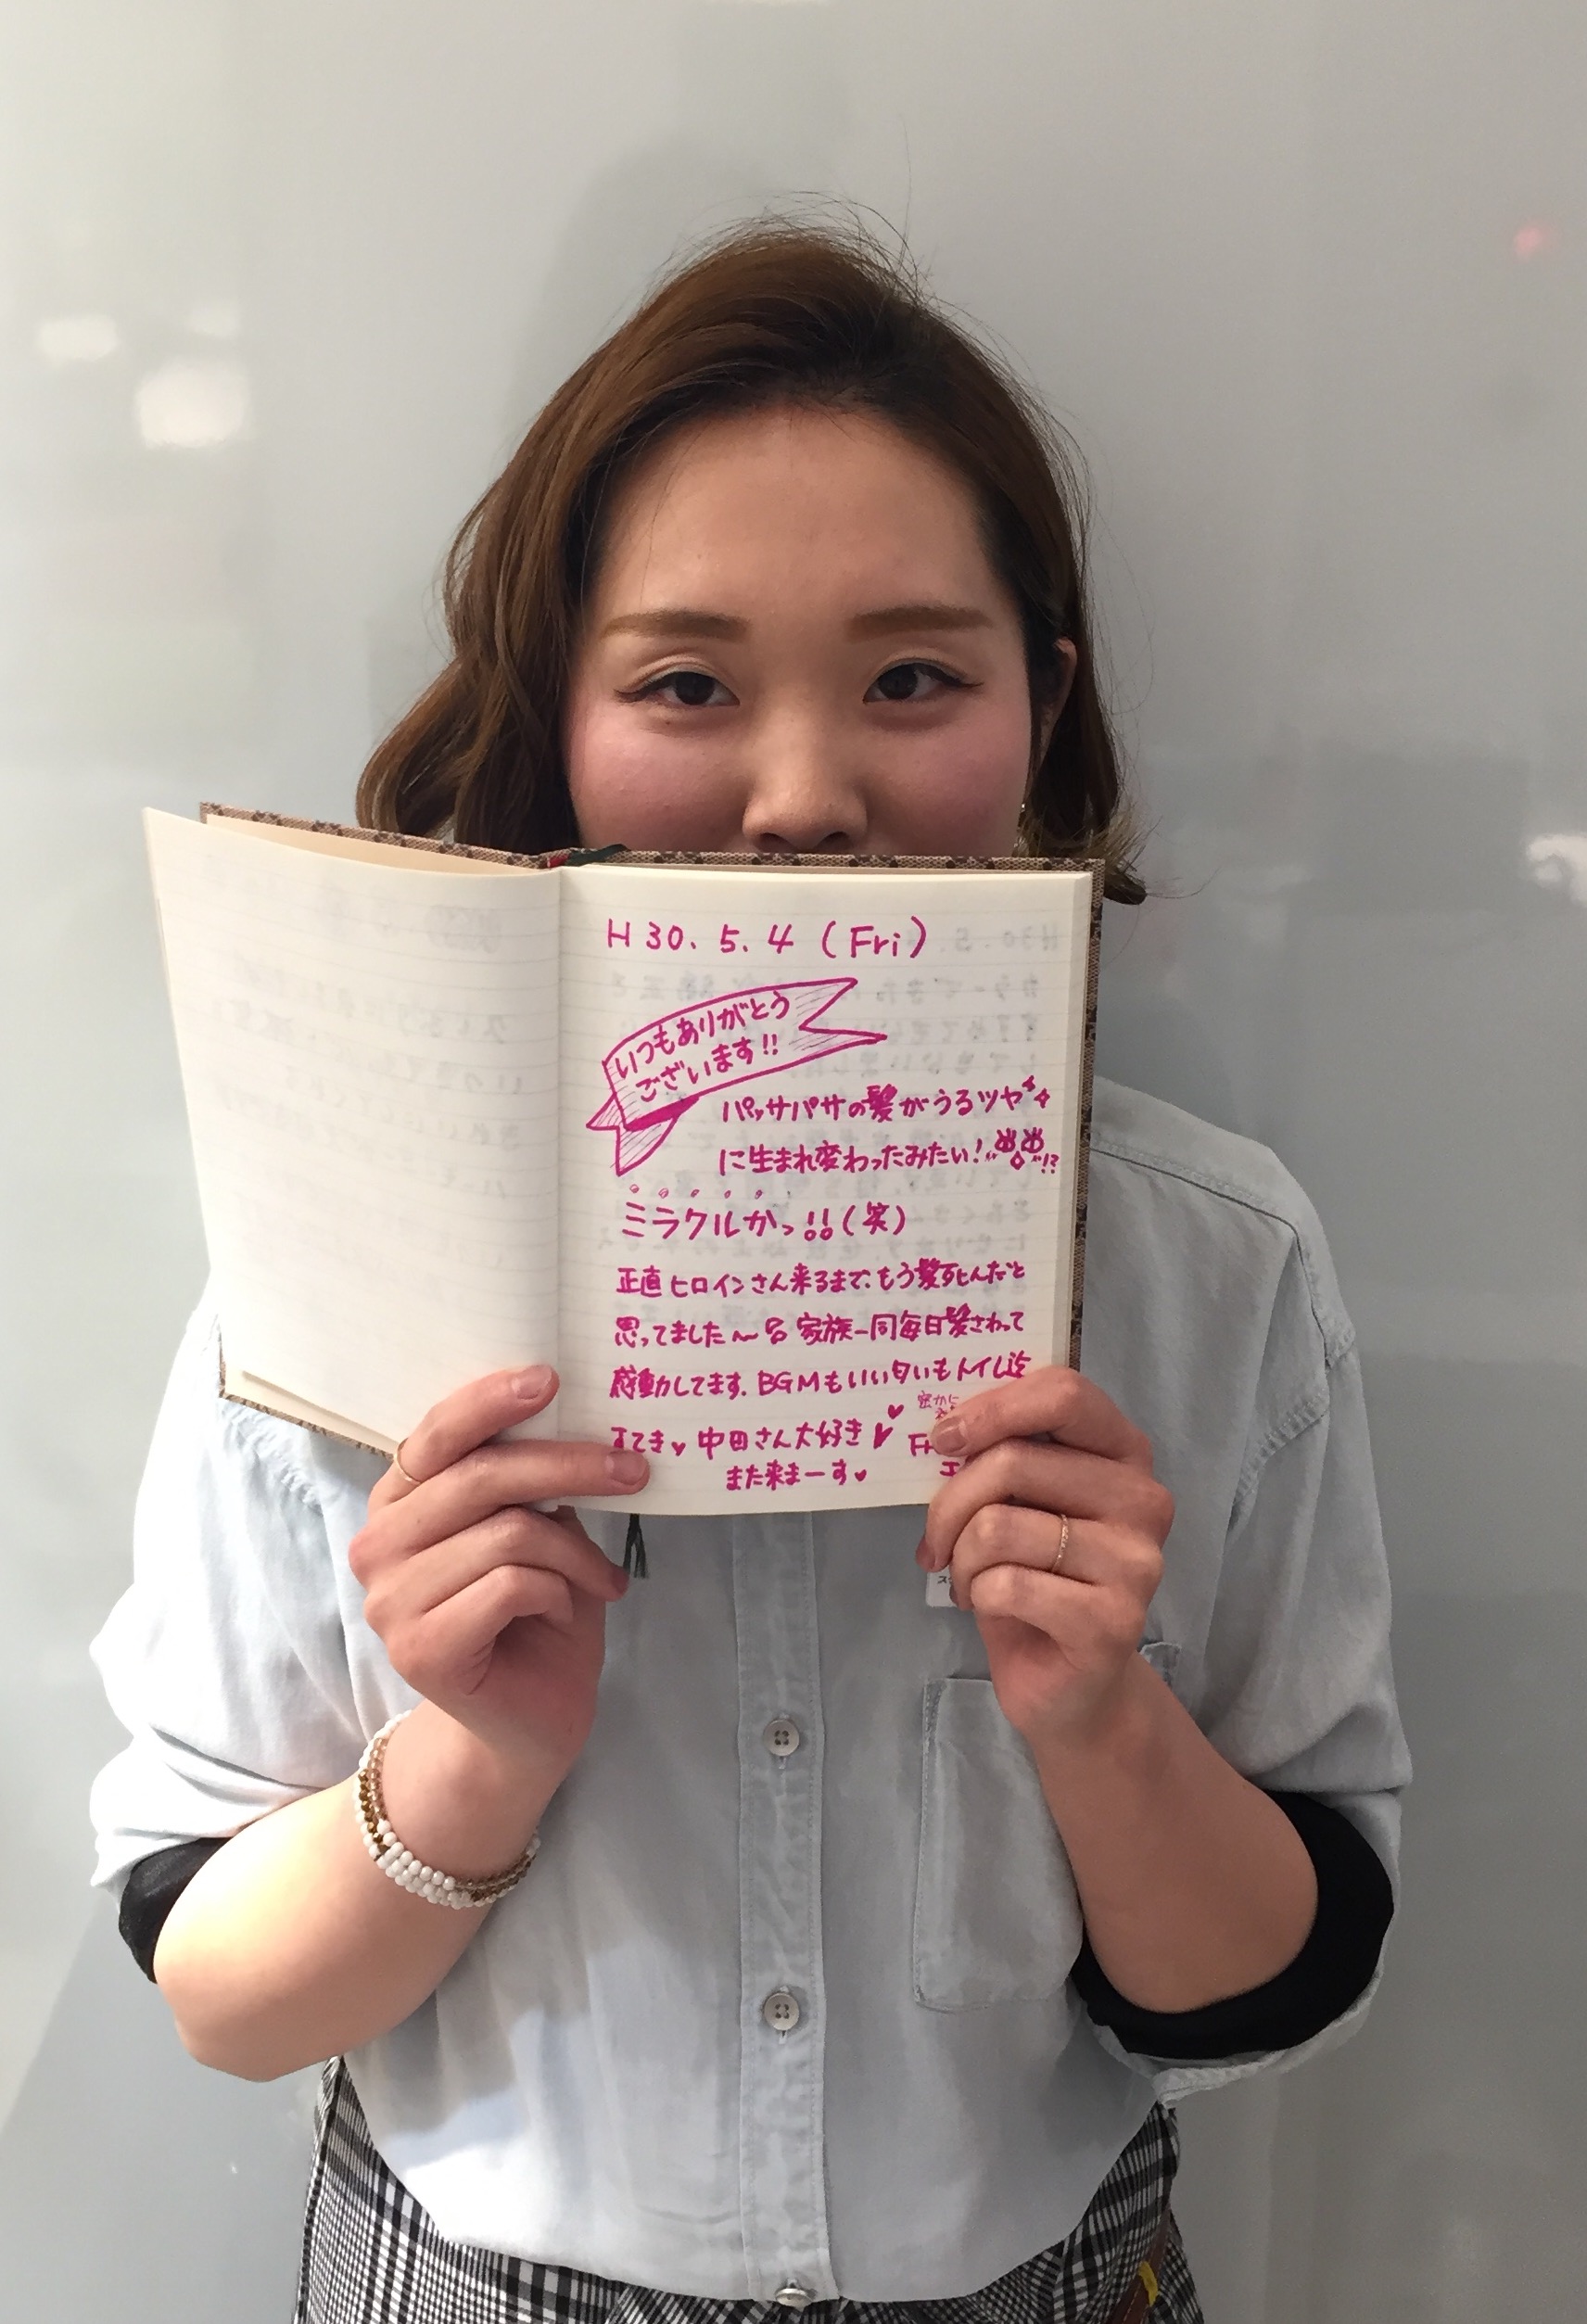 H30.5.4 (Fri)
いつもありがとう
ございます!!
パッサパサの髪がうるツヤ
に生まれ変わったみたい!!?
ミラクルかっ!!(笑)
正直ヒロインさん来るまで、もう髪死んだと
思ってました〜 家族一同毎日髪さわって
感動してます。BGMもいい匂いもトイレ迄
すてき♥ 中田さん大好き♥♥
また来まーす♥
密かに